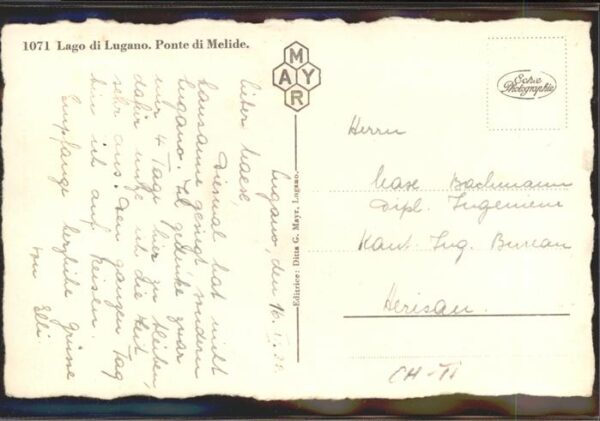 1071 Lago di Lugano. Ponte di Melide.
MAYR
Echte
Photographie
Editrice: Ditta G. Mayr, Lugano.
Lugano, den 16.
Lieber Kase,
Diesmal hat nicht
Lausanne gesiegt sondern
Lugano. Ich gedenke zwar
nur 4 Tage hier zu bleiben,
dafür nütze ich die Zeit
sehr aus. Den ganzen Tag
bin ich auf Reisen.
Empfange herzliche Grüsse
von Elli
Herrn
Kase Bachmann
Dipl. Ingenieur
Kant. Ing. Bureau
Herisau.
CH-TI